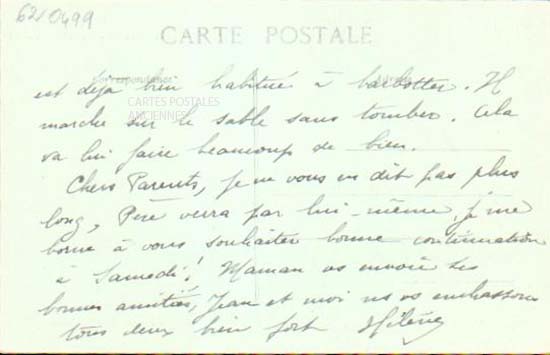 62/0499
CARTE POSTALE
Correspondance
Adresse
CARTES POSTALES
ANCIENNES
est déjà bien habitué à barbotter. Il
marche sur le sable sans tomber. Cela
va lui faire beaucoup de bien.
Chers Parents, je ne vous en dit pas plus
long, Père verra par lui-même, je me
borne à vous souhaiter bonne continuation
à Samedi! Maman vs envoie ses
bonnes amitiés, Jean et moi ns vs embrassons
tous deux bien fort Hélène